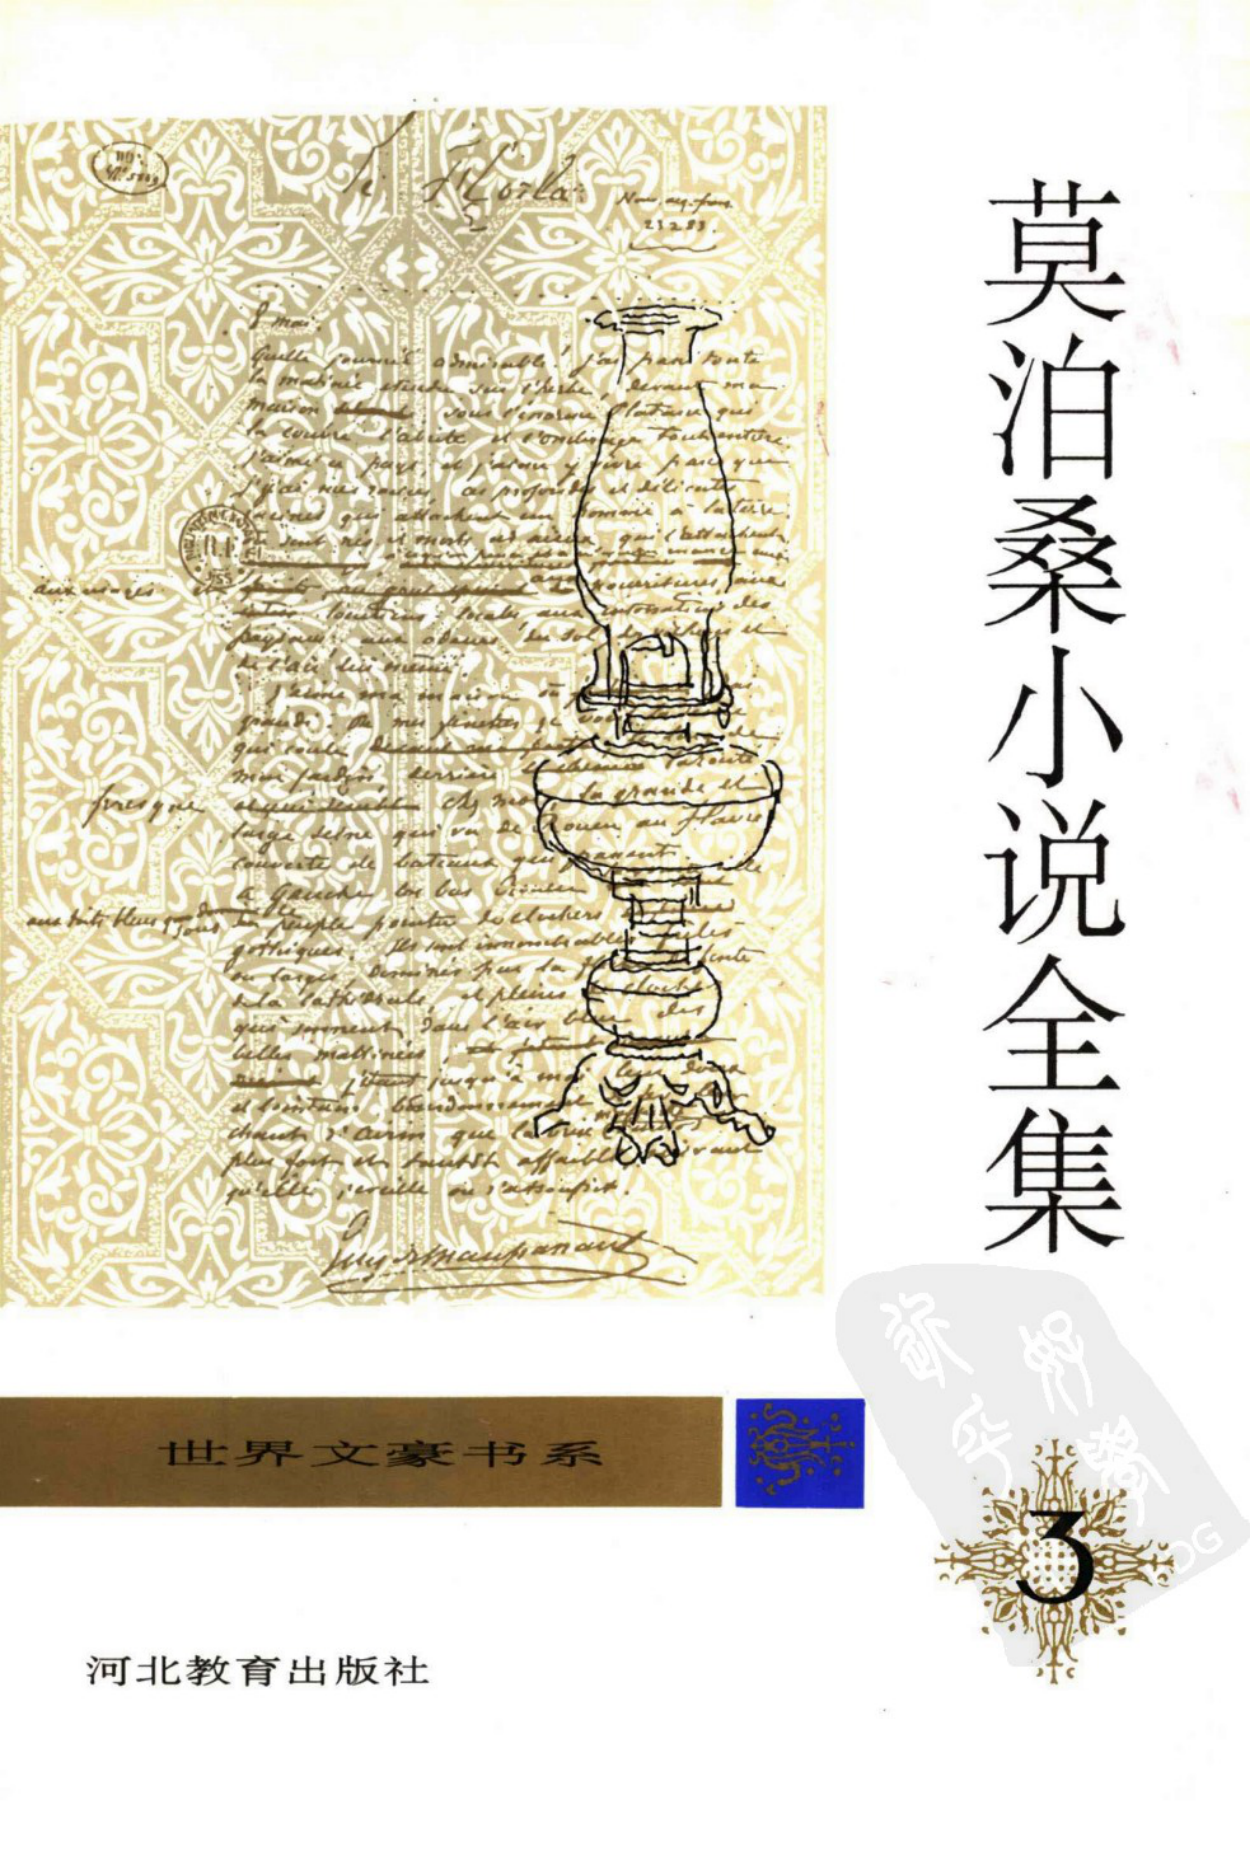 莫泊桑小说全集
Le Horla
Nouv. acq. franç.
23283.
8 mai.
Quelle journée admirable! j'ai passé toute
la matinée étendu sur l'herbe, devant ma
maison sous l'énorme platane qui
la couvre l'abrite et l'ombrage tout entière.
J'aime ce pays, et j'aime y vivre parce que
j'y ai mes racines, ces profondes et délicates
racines qui attachent un homme à la terre
où sont nés et morts ses aïeux, qui l'attachent
aux usages
nourritures, aux
locutions locales, aux intonations des
paysans, aux odeurs du sol, des villages et
de l'air lui-même.
J'aime ma maison où j'ai
grandi. De mes fenêtres je vois la Seine
qui coule
mon jardin derrière la route
presque
chez moi la grande et
large Seine qui va de Rouen au Havre
couverte de bateaux qui passent.
A gauche là-bas Rouen
aux toits bleus sous le peuple pointu de clochers
gothiques. Ils sont innombrables frêles
ou larges, dominés par la flèche de fonte
de la cathédrale, et pleins de cloches
qui sonnent dans l'air bleu des
belles matinées,
jetant jusqu'à moi leur doux
et lointain bourdonnement de fer, leur
chant d'airain que la brise m'apporte
plus fort et tantôt affaibli, suivant
qu'elle s'éveille ou s'assoupit.
Guy de Maupassant
世界文豪书系
3
河北教育出版社